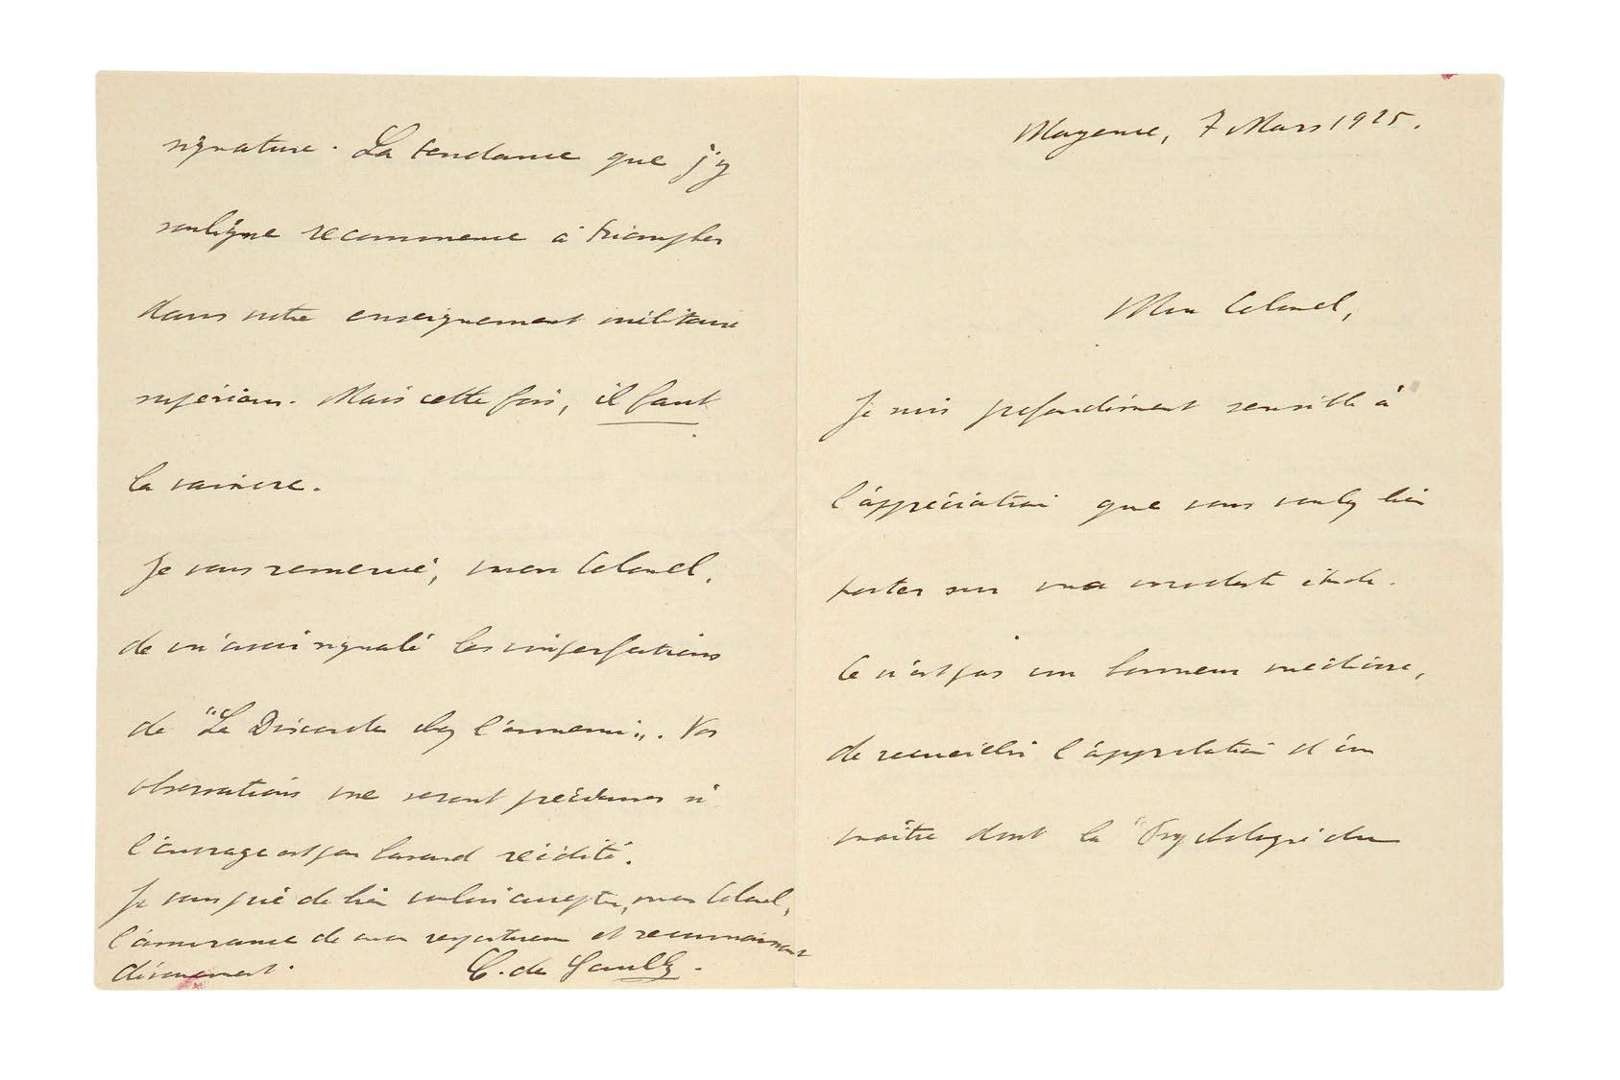 Mayence, 7 Mars 1925.
Mon Colonel,
Je suis profondément sensible à
l'appréciation que vous voulez bien
porter sur ma modeste étude.
Ce n'est pas un honneur médiocre,
de recueillir l'approbation d'un
maître dont la "Psychologie du
signature. La tendance que j'y
souligne recommence à triompher
dans notre enseignement militaire
supérieur. Mais cette fois, il faut
la vaincre.
Je vous remercie, mon Colonel,
de m'avoir signalé les imperfections
de "La Discorde chez l'ennemi". Vos
observations me seront précieuses si
l'ouvrage est par hasard réédité.
Je vous prie de bien vouloir accepter, mon Colonel,
l'assurance de mon respectueux et reconnaissant
dévouement. C. de Gaulle.